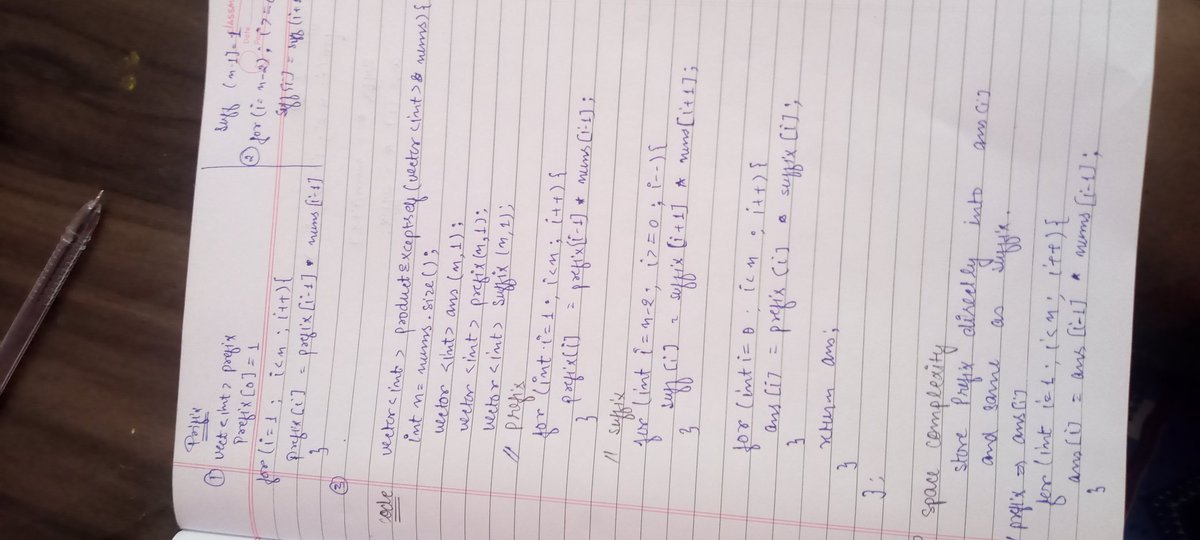 Prefix
① vect<int> prefix
prefix[0] = 1
for (i=1 ; i<n ; i++){
prefix[i] = prefix[i-1] * nums[i-1]
}
suff (n-1] = 1
② for (i= n-2) ; i>=0
suff[i] = suff (i+1
③
code
vector<int> productExceptself (vector<int>& nums){
int n = nums.size();
vector<int> ans (n,1);
vector<int> prefix(n,1);
vector<int> suffix (n,1);
// prefix
for (int i=1 ; i<n ; i++){
prefix[i] = prefix[i-1] * nums[i-1];
}
// suffix
for (int i=n-2 ; i>=0 ; i--){
suff[i] = suffix [i+1] * nums[i+1];
}
for (int i=0 ; i<n ; i++){
ans[i] = prefix[i] * suffix[i];
}
return ans;
}
};
space complexity
store Prefix directly into ans[i]
and same as suffix.
prefix => ans[i]
for (int i=1 ; i<n ; i++){
ans[i] = ans[i-1] * nums[i-1];
}